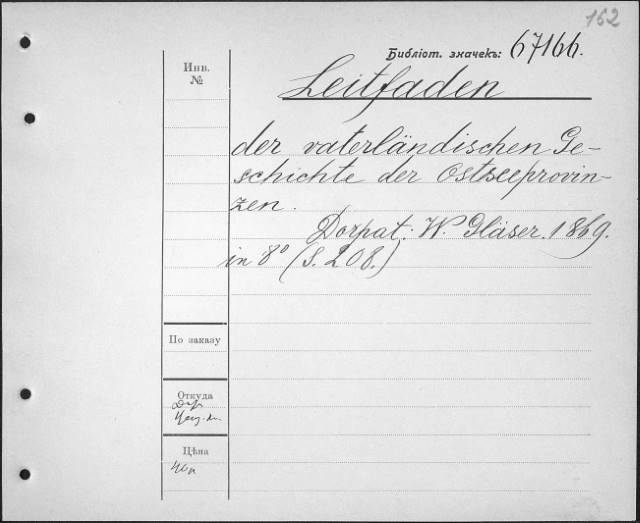 162
Библіот. значекъ: 67166.
Инв.
№
Leitfaden
der vaterländischen Ge-
schichte der Ostseeprovin-
zen.
Dorpat. W. Gläser. 1869.
in 8° (S. 208.)
По заказу
Откуда
Цѣна
40к